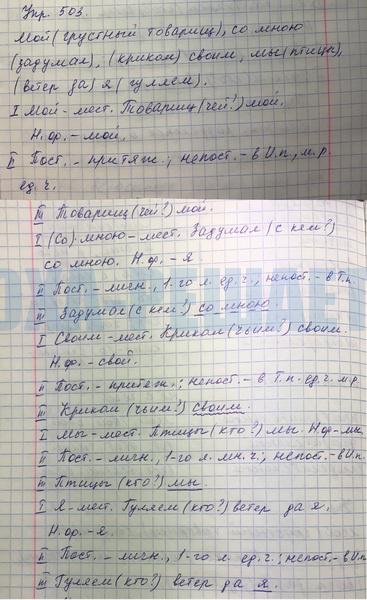 Упр. 503.
Мой (грустный товарищ), со мною
(задумал), (криком) своим, мы (птицы),
(ветер да) я (гуляем).
I Мой - мест. Товарищ (чей?) мой.
Н.ф. - мой.
II Пост. - притяж.; непост. - в И.п., м.р.
ед.ч.
III Товарищ (чей?) мой.
I (Со) мною - мест. Задумал (с кем?)
со мною. Н.ф. - я
II Пост. - личн., 1-го л. ед.ч., непост. - в Т.п.
III Задумал (с кем?) со мною.
I Своим - мест. Криком (чьим?) своим.
Н.ф. - свой.
II Пост. - притяж.; непост. - в Т.п. ед.ч. м.р.
III Криком (чьим?) своим.
I Мы - мест. Птицы (кто?) мы. Н.ф. - мы.
II Пост. - личн., 1-го л. мн.ч.; непост. - в И.п.
III Птицы (кто?) мы.
I Я - мест. Гуляем (кто?) ветер да я.
Н.ф. - я.
II Пост. - личн., 1-го л. ед.ч.; непост. - в И.п.
III Гуляем (кто?) ветер да я.